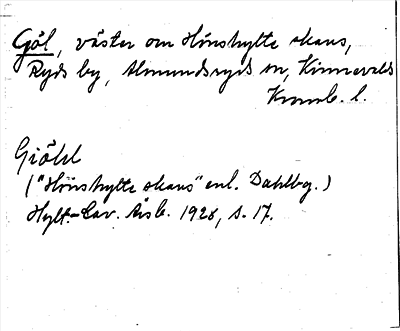 Göl, väster om Hönshylte skans,
Ryds by, Almundsryds sn, Kinnevalds
Kronob. l.
Giöhl
("Hönshylte skans" enl. Dahlbg.)
Hylt.-Cav. Årsb. 1928, s. 17.